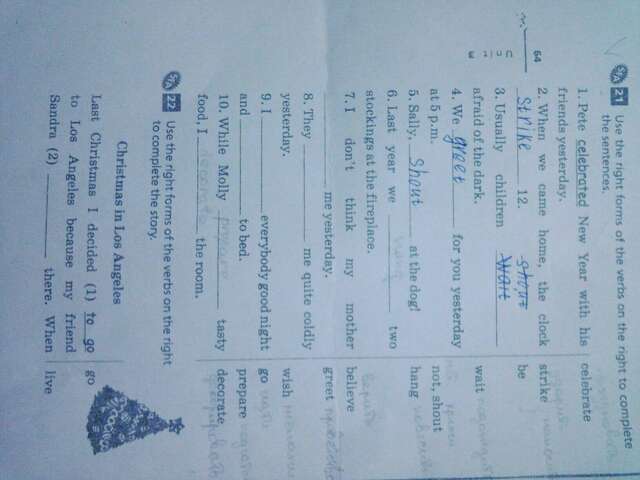 64
5/A 21 Use the right forms of the verbs on the right to complete
the sentences.
1. Pete celebrated New Year with his celebrate
friends yesterday.
2. When we came home, the clock strike
strike 12. be
3. Usually children shout wait
afraid of the dark. wait
4. We greet for you yesterday
at 5 p.m. not, shout
5. Sally, Shout at the dog! hang
6. Last year we hang two
stockings at the fireplace.
7. I don't think my mother believe
me yesterday. greet
8. They me quite coldly
yesterday. wish
9. I everybody good night go
and to bed. prepare
10. While Molly prepare tasty decorate
food, I decorate the room.
5/A 22 Use the right forms of the verbs on the right
to complete the story.
Christmas in Los Angeles
Last Christmas I decided (1) to go go
to Los Angeles because my friend
Sandra (2) there. When live